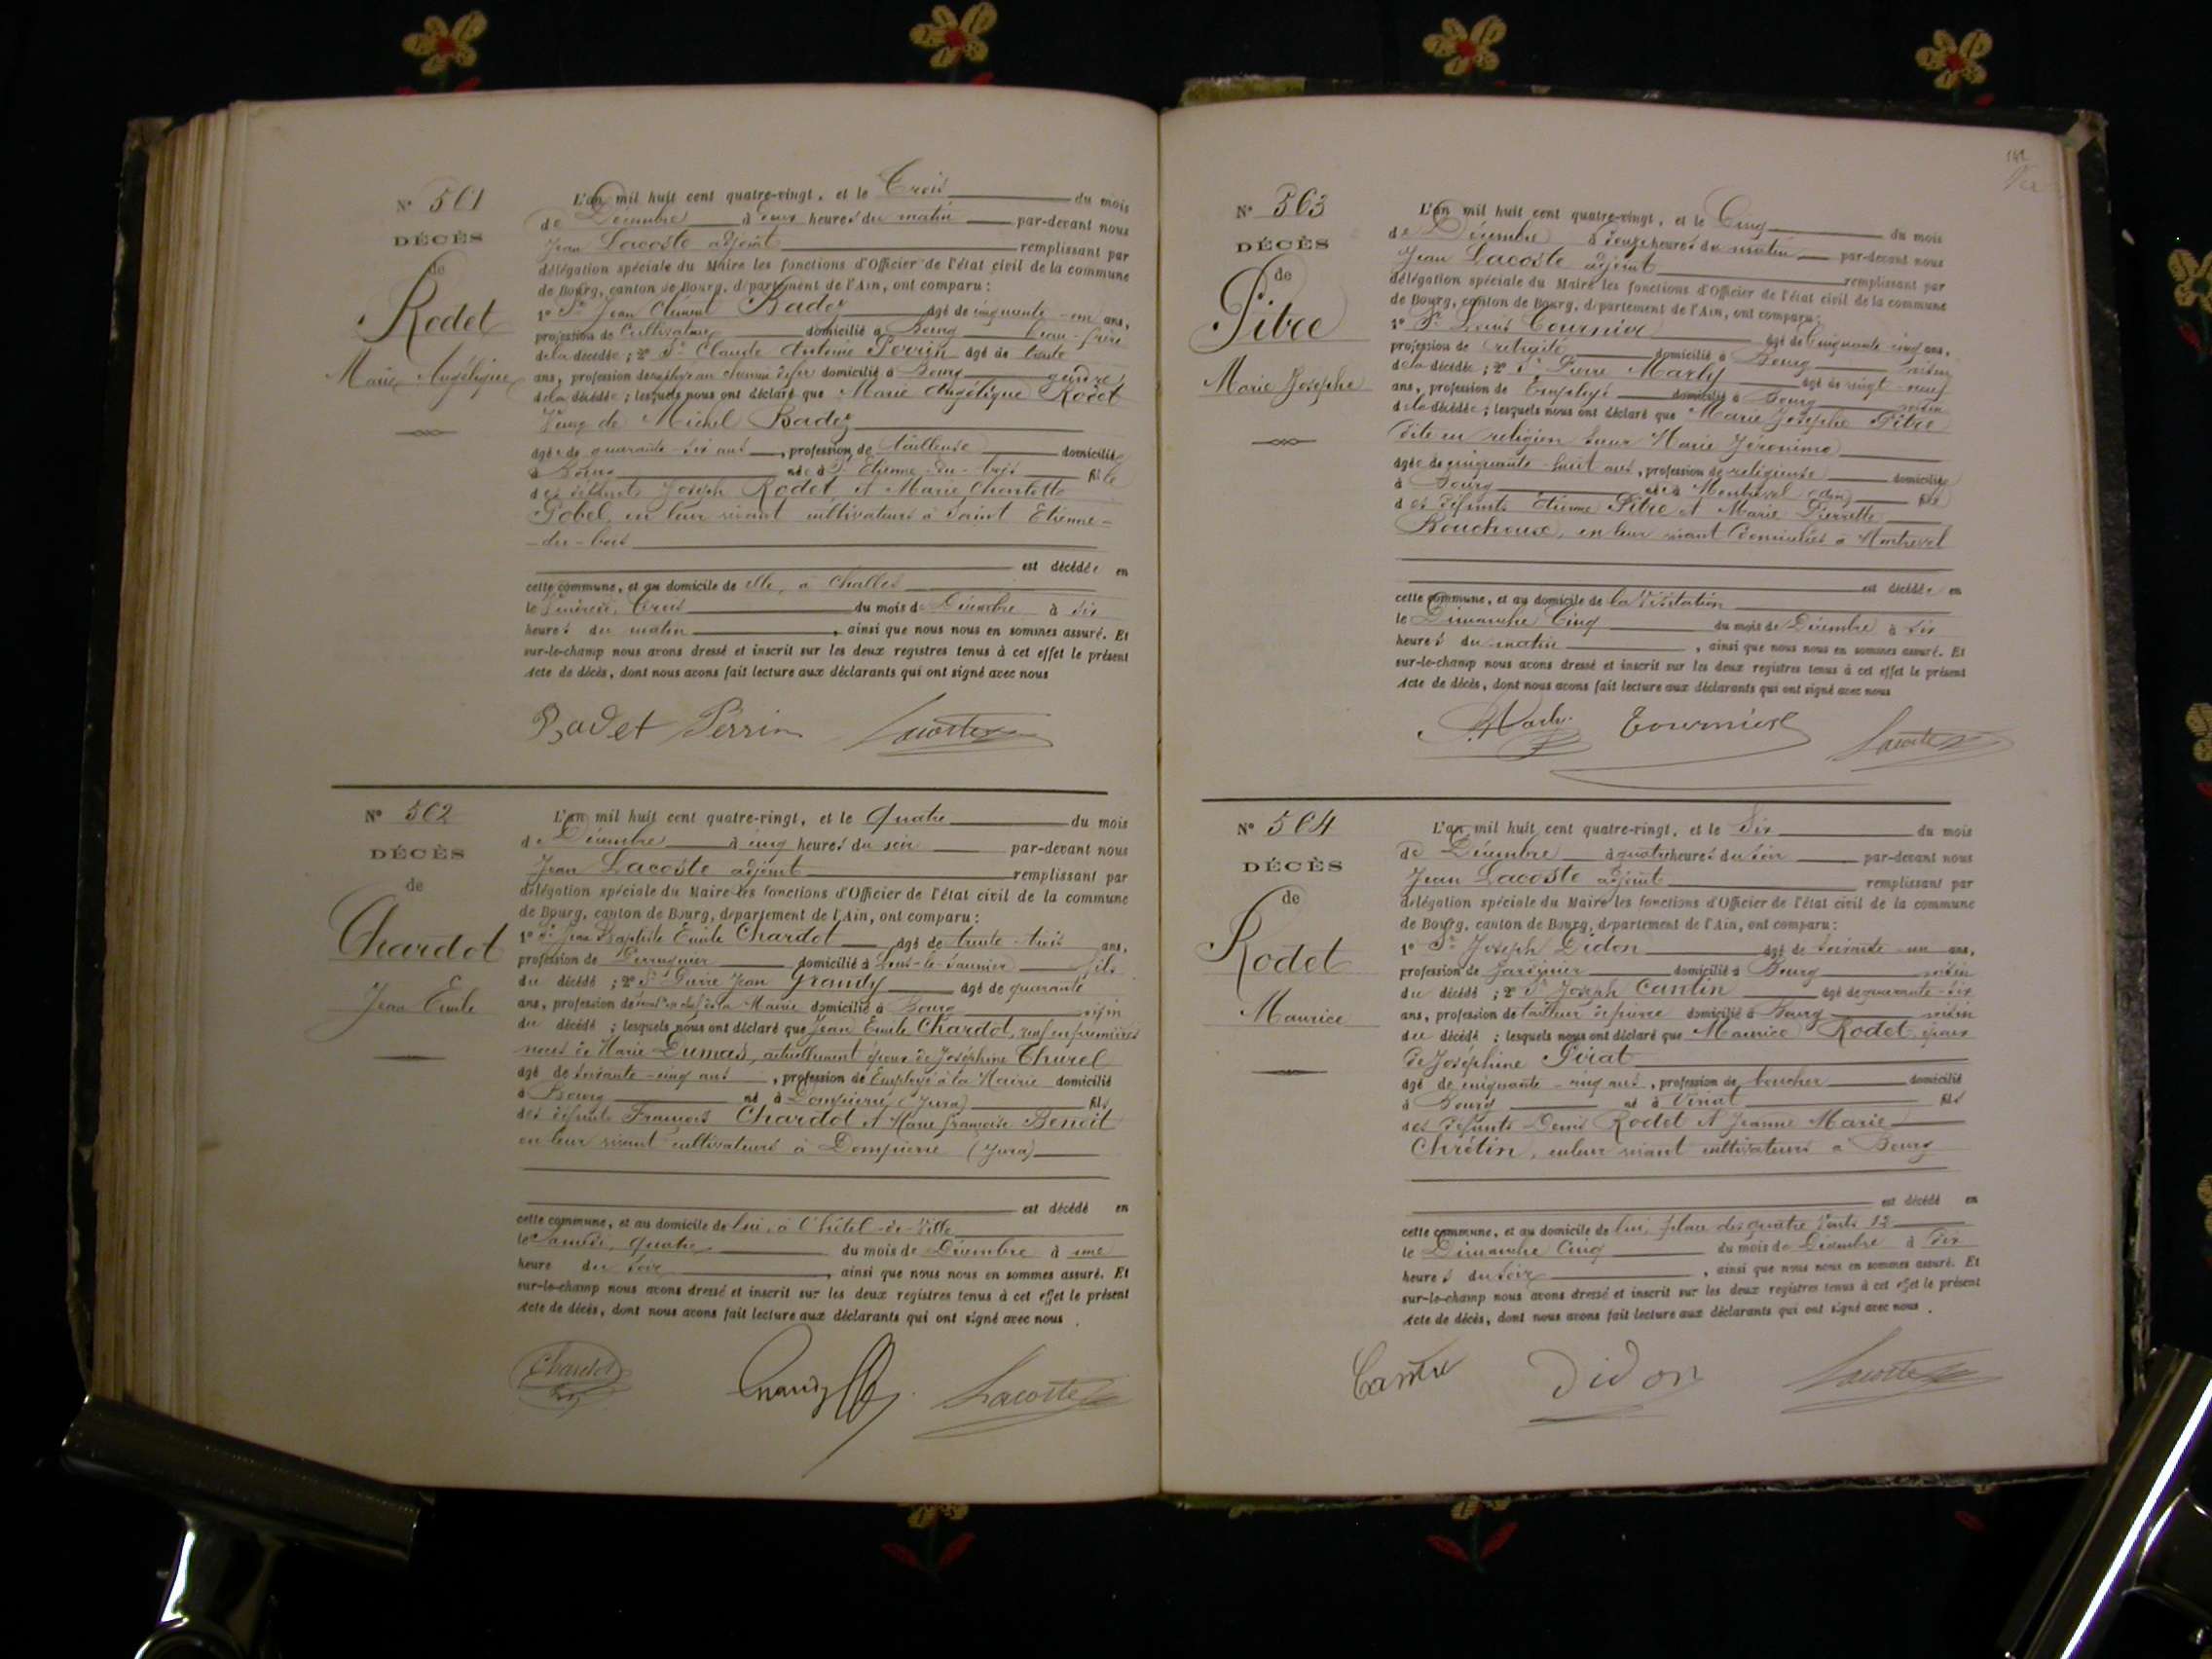 Nº 501
DÉCÈS
de
Rodet
Marie Angélique
L'an mil huit cent quatre-vingt, et le Trois du mois
de Décembre à heures du matin par-devant nous
Jean Lacoste adjoint remplissant par
délégation spéciale du Maire les fonctions d'Officier de l'état civil de la commune
de Bourg, canton de Bourg, département de l'Ain, ont comparu :
1º Sr Jean Clément Badez âgé de cinquante-un ans,
profession de Cultivateur domicilié à Bourg beau-frère
de la décédée ; 2º Sr Claude Antoine Perrin âgé de trente
ans, profession de employé au chemin de fer domicilié à Bourg gendre
de la décédée ; lesquels nous ont déclaré que Marie Angélique Rodet
Veuve de Michel Badez
âgée de quarante-six ans, profession de tailleuse domiciliée
à Bourg née à St Etienne-du-bois fille
des défunts Joseph Rodet et Marie Charlotte
Gobel, en leur vivant cultivateurs à Saint Etienne-
-du-bois
est décédée en
cette commune, et au domicile de elle, à Challes
le Vendredi, Trois du mois de Décembre à six
heures du matin, ainsi que nous nous en sommes assuré. Et
sur-le-champ nous avons dressé et inscrit sur les deux registres tenus à cet effet le présent
acte de décès, dont nous avons fait lecture aux déclarants qui ont signé avec nous
Badet Perrin Lacoste
Nº 502
DÉCÈS
de
Chardot
Jean Emile
L'an mil huit cent quatre-vingt, et le Quatre du mois
de Décembre à cinq heures du soir par-devant nous
Jean Lacoste adjoint remplissant par
délégation spéciale du Maire les fonctions d'Officier de l'état civil de la commune
de Bourg, canton de Bourg, département de l'Ain, ont comparu :
1º Sr Jean Baptiste Emile Chardot âgé de trente-trois ans,
profession de Perruquier domicilié à Lons-le-Saunier fils
du décédé ; 2º Sr Pierre Jean Grandy âgé de quarante
ans, profession de la Mairie domicilié à Bourg voisin
du décédé ; lesquels nous ont déclaré que Jean Emile Chardot, veuf en premières
noces de Marie Dumas, actuellement époux de Joséphine Thurel
âgé de soixante-cinq ans, profession de Employé à la Mairie domicilié
à Bourg né à Dompierre (Jura) fils
des défunts François Chardot et Marie Françoise Benoit
en leur vivant cultivateurs à Dompierre (Jura)
est décédé en
cette commune, et au domicile de lui, à l'hôtel-de-Ville
le Samedi, Quatre du mois de Décembre à une
heure du soir, ainsi que nous nous en sommes assuré. Et
sur-le-champ nous avons dressé et inscrit sur les deux registres tenus à cet effet le présent
acte de décès, dont nous avons fait lecture aux déclarants qui ont signé avec nous.
Chardot Grandy Lacoste
142
Nº 503
DÉCÈS
de
Pitre
Marie Josephe
L'an mil huit cent quatre-vingt, et le Cinq du mois
de Décembre à onze heures du matin par-devant nous
Jean Lacoste adjoint remplissant par
délégation spéciale du Maire les fonctions d'Officier de l'état civil de la commune
de Bourg, canton de Bourg, département de l'Ain, ont comparu :
1º Sr Louis Tournier âgé de Cinquante-cinq ans,
profession de retraité domicilié à Bourg voisin
de la décédée ; 2º Sr Pierre Marly âgé de vingt-neuf
ans, profession de Employé domicilié à Bourg voisin
de la décédée ; lesquels nous ont déclaré que Marie Josephe Pitre
dite en religion Sœur Marie Jéronimo
âgée de cinquante-huit ans, profession de religieuse domiciliée
à Bourg née à Montrevel (Ain) fille
des défunts Etienne Pitre et Marie Pierrette
Bouchoux, en leur vivant domiciliés à Montrevel
est décédée en
cette commune, et au domicile de la Visitation
le Dimanche Cinq du mois de Décembre à six
heures du matin, ainsi que nous nous en sommes assuré. Et
sur-le-champ nous avons dressé et inscrit sur les deux registres tenus à cet effet le présent
acte de décès, dont nous avons fait lecture aux déclarants qui ont signé avec nous
Marly Tournier Lacoste
Nº 504
DÉCÈS
de
Rodet
Maurice
L'an mil huit cent quatre-vingt, et le Six du mois
de Décembre à quatre heures du soir par-devant nous
Jean Lacoste adjoint remplissant par
délégation spéciale du Maire les fonctions d'Officier de l'état civil de la commune
de Bourg, canton de Bourg, département de l'Ain, ont comparu :
1º Sr Joseph Didon âgé de soixante-un ans,
profession de jardinier domicilié à Bourg voisin
du décédé ; 2º Sr Joseph Cantin âgé de quarante-six
ans, profession de tailleur de pierre domicilié à Bourg voisin
du décédé ; lesquels nous ont déclaré que Maurice Rodet, époux
de Joséphine Pirat
âgé de cinquante-cinq ans, profession de boucher domicilié
à Bourg né à Viriat fils
des défunts Denis Rodet et Jeanne Marie
Chrétin, en leur vivant cultivateurs à Bourg
est décédé en
cette commune, et au domicile de lui, place des quatre Vents 12
le Dimanche Cinq du mois de Décembre à Dix
heures du soir, ainsi que nous nous en sommes assuré. Et
sur-le-champ nous avons dressé et inscrit sur les deux registres tenus à cet effet le présent
acte de décès, dont nous avons fait lecture aux déclarants qui ont signé avec nous.
Didon Lacoste